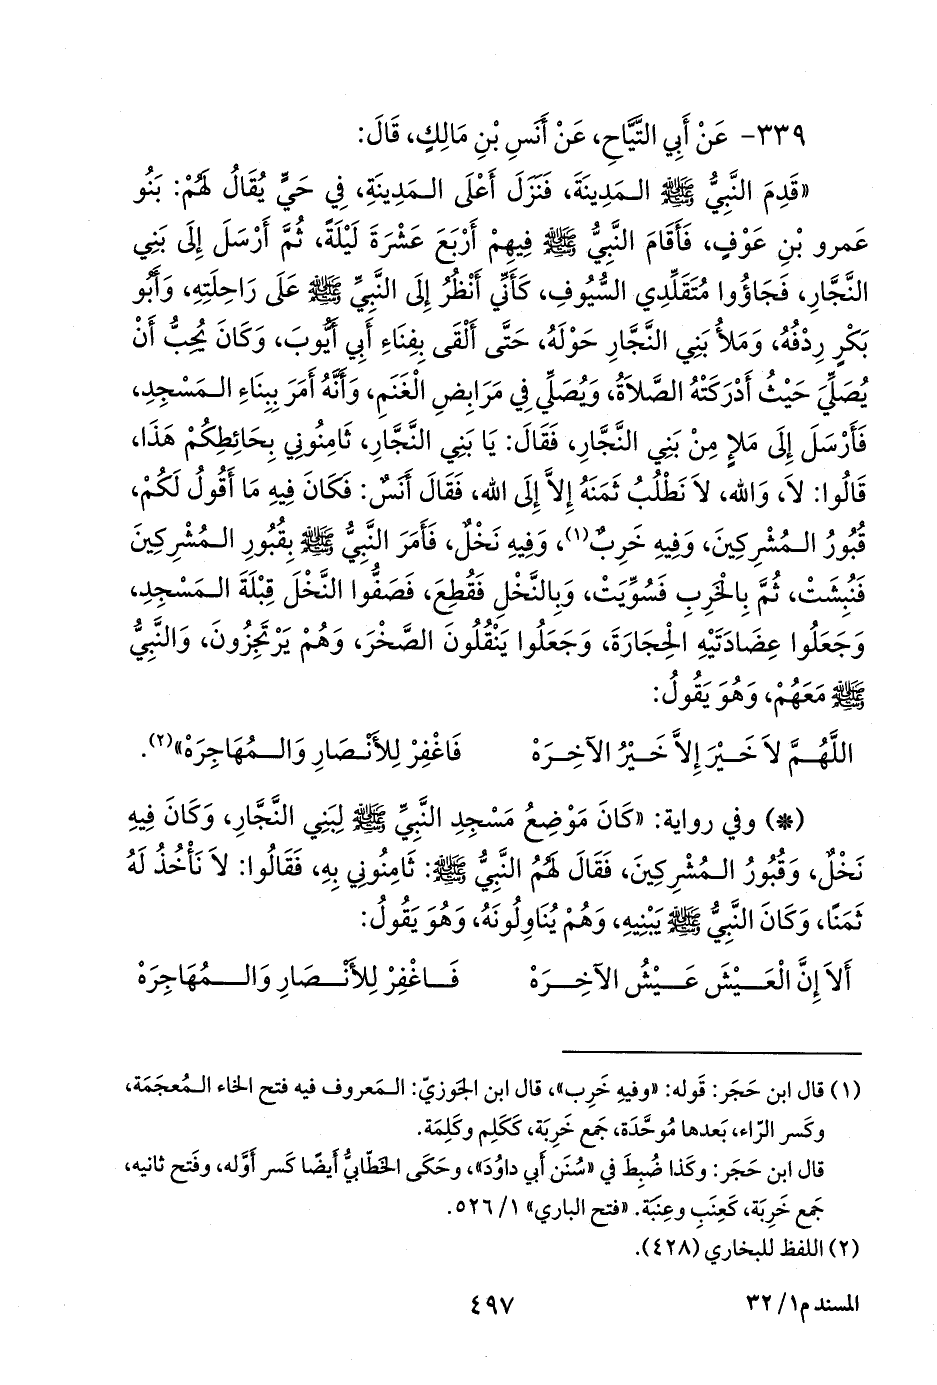 ٣٣٩- عَنْ أَبِي التَّيَّاحِ، عَنْ أَنَسِ بْنِ مَالِكٍ، قَالَ:
«قَدِمَ النَّبِيُّ ﷺ الـمَدِينَةَ، فَنَزَلَ أَعْلَى الـمَدِينَةِ، فِي حَيٍّ يُقَالُ لَهُمْ: بَنُو
عَمرو بْنِ عَوْفٍ، فَأَقَامَ النَّبِيُّ ﷺ فِيهِمْ أَرْبَعَ عَشْرَةَ لَيْلَةً، ثُمَّ أَرْسَلَ إِلَى بَنِي
النَّجَّارِ، فَجَاؤُوا مُتَقَلِّدِي السُّيُوفِ، كَأَنِّي أَنْظُرُ إِلَى النَّبِيِّ ﷺ عَلَى رَاحِلَتِهِ، وَأَبُو
بَكْرٍ رِدْفُهُ، وَمَلأُ بَنِي النَّجَّارِ حَوْلَهُ، حَتَّى أَلْقَى بِفِنَاءِ أَبِي أَيُّوبَ، وَكَانَ يُحِبُّ أَنْ
يُصَلِّيَ حَيْثُ أَدْرَكَتْهُ الصَّلاَةُ، وَيُصَلِّي فِي مَرَابِضِ الْغَنَمِ، وَأَنَّهُ أَمَرَ بِبِنَاءِ الـمَسْجِدِ،
فَأَرْسَلَ إِلَى مَلإٍ مِنْ بَنِي النَّجَّارِ، فَقَالَ: يَا بَنِي النَّجَّارِ، ثَامِنُونِي بِحَائِطِكُمْ هَذَا،
قَالُوا: لاَ، وَالله، لاَ نَطْلُبُ ثَمَنَهُ إِلاَّ إِلَى الله، فَقَالَ أَنَسٌ: فَكَانَ فِيهِ مَا أَقُولُ لَكُمْ،
قُبُورُ الـمُشْرِكِينَ، وَفِيهِ خَرِبٌ(١)، وَفِيهِ نَخْلٌ، فَأَمَرَ النَّبِيُّ ﷺ بِقُبُورِ الـمُشْرِكِينَ
فَنُبِشَتْ، ثُمَّ بِالْخَرِبِ فَسُوِّيَتْ، وَبِالنَّخْلِ فَقُطِعَ، فَصَفُّوا النَّخْلَ قِبْلَةَ الـمَسْجِدِ،
وَجَعَلُوا عِضَادَتَيْهِ الْحِجَارَةَ، وَجَعَلُوا يَنْقُلُونَ الصَّخْرَ، وَهُمْ يَرْتَجِزُونَ، وَالنَّبِيُّ
ﷺ مَعَهُمْ، وَهُوَ يَقُولُ:
اللَّهُمَّ لاَ خَيْرَ إِلاَّ خَيْرُ الآخِرَهْ فَاغْفِرْ لِلأَنْصَارِ وَالـمُهَاجِرَهْ»(٢).
(*) وفي رواية: «كَانَ مَوْضِعُ مَسْجِدِ النَّبِيِّ ﷺ لِبَنِي النَّجَّارِ، وَكَانَ فِيهِ
نَخْلٌ، وَقُبُورُ الـمُشْرِكِينَ، فَقَالَ لَهُمُ النَّبِيُّ ﷺ: ثَامِنُونِي بِهِ، فَقَالُوا: لاَ نَأْخُذُ لَهُ
ثَمَنًا، وَكَانَ النَّبِيُّ ﷺ يَبْنِيهِ، وَهُمْ يُنَاوِلُونَهُ، وَهُوَ يَقُولُ:
أَلاَ إِنَّ الْعَيْشَ عَيْشُ الآخِرَهْ فَاغْفِرْ لِلأَنْصَارِ وَالـمُهَاجِرَهْ
(١) قال ابن حَجَر: قَوله: «وفيهِ خَرِب»، قال ابن الجَوزيّ: الـمَعروف فيه فتح الخاء الـمُعجَمة،
وكَسر الرّاء، بَعدها مُوحَّدَة، جَمع خَرِبَة، كَكَلِم وكَلِمَة.
قال ابن حَجَر: وكَذا ضُبِطَ في «سُنَن أَبي داوُدَ»، وحَكَى الخَطّابيُّ أَيضًا كَسر أَوَّله، وفَتح ثانيه،
جَمع خَرِبَة، كَعِنَب وعِنَبَة. «فتح الباري» ١/ ٥٢٦.
(٢) اللفظ للبخاري (٤٢٨).
المسند م١/ ٣٢
٤٩٧